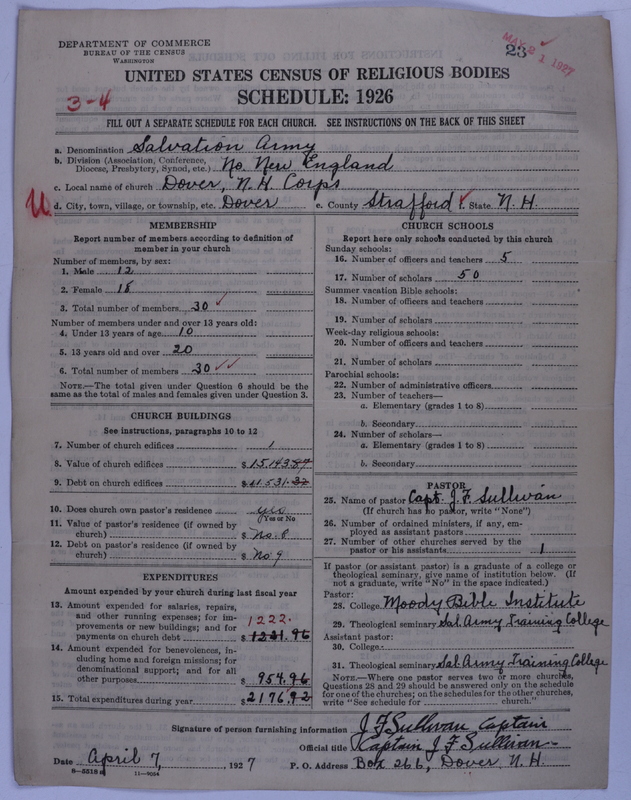 DEPARTMENT OF COMMERCE
BUREAU OF THE CENSUS
WASHINGTON
23
MAY 21 1927
UNITED STATES CENSUS OF RELIGIOUS BODIES
SCHEDULE: 1926
3-4
FILL OUT A SEPARATE SCHEDULE FOR EACH CHURCH. SEE INSTRUCTIONS ON THE BACK OF THIS SHEET
a. Denomination Salvation Army
b. Division (Association, Conference, Diocese, Presbytery, Synod, etc.) No. New England
c. Local name of church Dover, N.H. Corps
U. d. City, town, village, or township, etc. Dover e. County Strafford f. State N.H.
MEMBERSHIP
Report number of members according to definition of
member in your church
Number of members, by sex:
1. Male 12
2. Female 18
3. Total number of members 30
Number of members under and over 13 years old:
4. Under 13 years of age 10
5. 13 years old and over 20
6. Total number of members 30
NOTE.—The total given under Question 6 should be the
same as the total of males and females given under Question 3.
CHURCH BUILDINGS
See instructions, paragraphs 10 to 12
7. Number of church edifices 1
8. Value of church edifices $15,143.87
9. Debt on church edifices $11,531.37
10. Does church own pastor's residence yes
(Yes or No)
11. Value of pastor's residence (if owned by
church) $ No. 8
12. Debt on pastor's residence (if owned by
church) $ No 9
EXPENDITURES
Amount expended by your church during last fiscal year
13. Amount expended for salaries, repairs,
and other running expenses; for im-
provements or new buildings; and for 1222.
payments on church debt $1221.96
14. Amount expended for benevolences, in-
cluding home and foreign missions; for
denominational support; and for all
other purposes $954.96
15. Total expenditures during year $2176.92
CHURCH SCHOOLS
Report here only schools conducted by this church
Sunday schools:
16. Number of officers and teachers 5
17. Number of scholars 50
Summer vacation Bible schools:
18. Number of officers and teachers
19. Number of scholars
Week-day religious schools:
20. Number of officers and teachers
21. Number of scholars
Parochial schools:
22. Number of administrative officers
23. Number of teachers—
a. Elementary (grades 1 to 8)
b. Secondary
24. Number of scholars—
a. Elementary (grades 1 to 8)
b. Secondary
PASTOR
25. Name of pastor Capt. J. F. Sullivan
(If church has no pastor, write "None")
26. Number of ordained ministers, if any, em-
ployed as assistant pastors
27. Number of other churches served by the
pastor or his assistants 1
If pastor (or assistant pastor) is a graduate of a college or
theological seminary, give name of institution below. (If
not a graduate, write "No" in the space indicated.)
Pastor:
28. College Moody Bible Institute
29. Theological seminary Sal. Army Training College
Assistant pastor:
30. College
31. Theological seminary Sal. Army Training College
NOTE.—Where one pastor serves two or more churches,
Questions 28 and 29 should be answered only on the schedule
for one of the churches; on the schedules for the other churches,
write "See schedule for church."
Signature of person furnishing information J F Sullivan Captain
Official title Captain J F Sullivan
Date April 7, 1927 P. O. Address Box 266, Dover, N.H.
8-5518a 11-9054